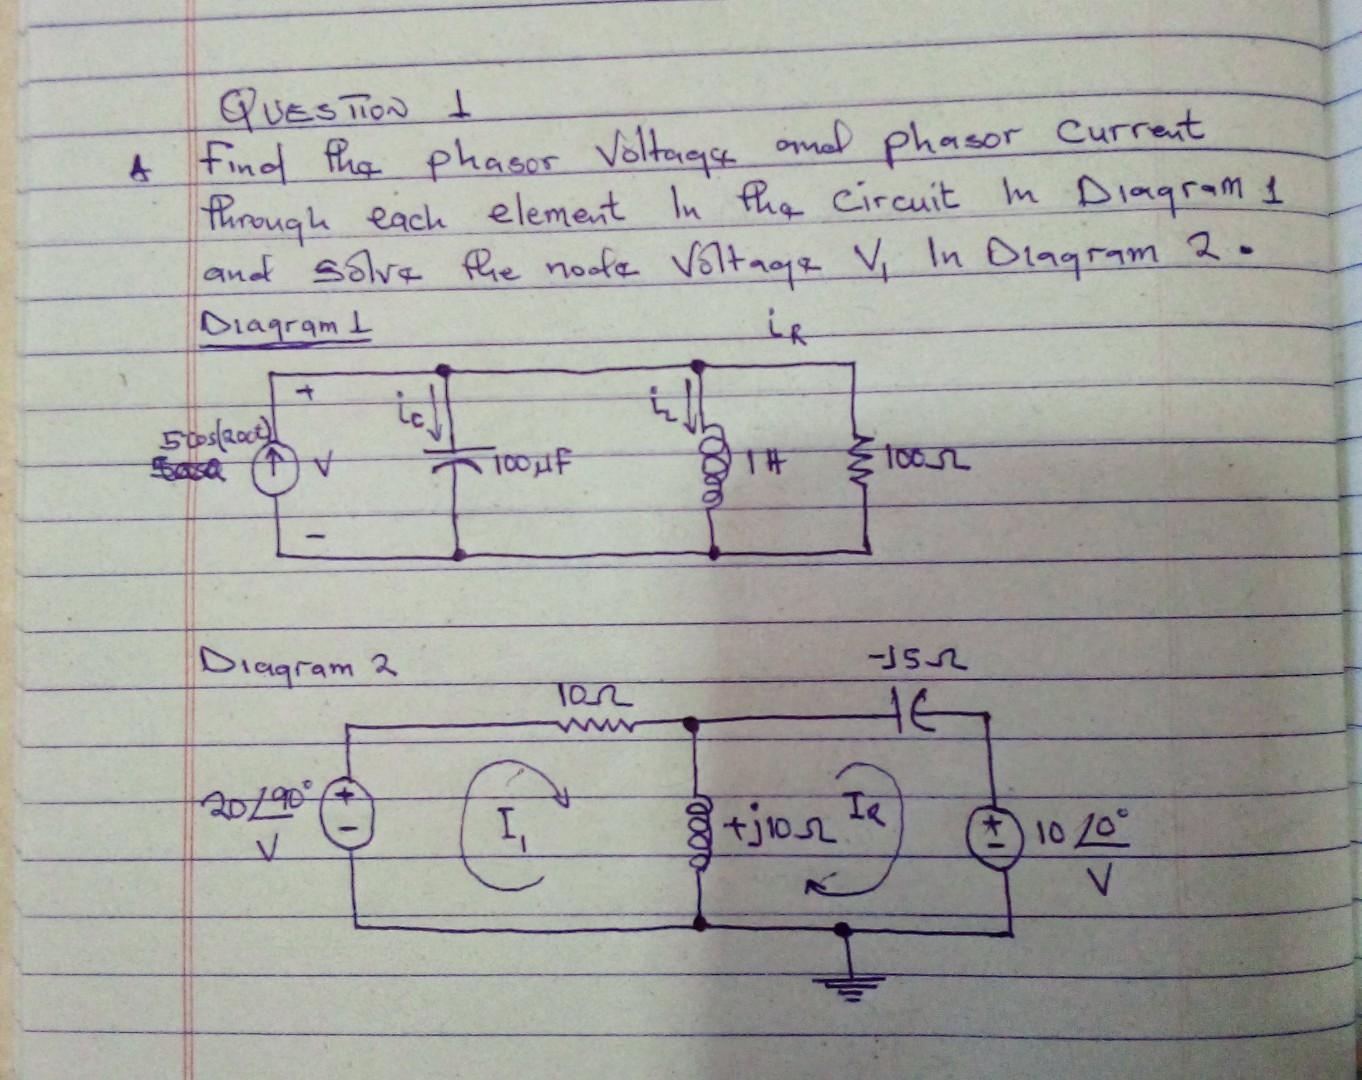 QUESTION 1
A Find the phasor Voltage and phasor Current
through each element In the Circuit In Diagram 1
and solve the node Voltage V₁ In Diagram 2.
Diagram 1
iR
+
ic
iL
5cos(200t)
V
100μF
1H
100Ω
-
Diagram 2
-J5Ω
10Ω
20∠90°
V
+
-
I₁
+j10Ω
I2
+
-
10∠0°
V